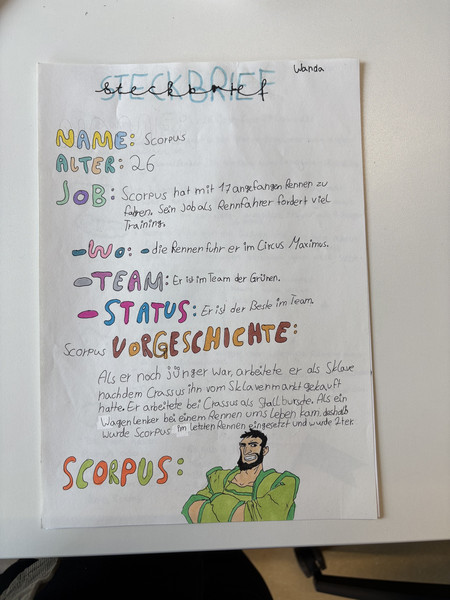 Wanda
STECKBRIEF
steckbrief
NAME: Scorpus
ALTER: 26
JOB: Scorpus hat mit 17 angefangen Rennen zu
fahren. Sein Job als Rennfahrer fordert viel
Training.
-Wo: - die Rennen fuhr er im Circus Maximus.
-TEAM: Er ist im Team der Grünen.
-STATUS: Er ist der Beste im Team.
Scorpus VORGESCHICHTE:
Als er noch jünger war, arbeitete er als Sklave
nachdem Crassus ihn vom Sklavenmarkt gekauft
hatte. Er arbeitete bei Crassus als Stallbursche. Als ein
Wagenlenker bei einem Rennen ums leben kam. deshalb
wurde Scorpus im letzten Rennen eingesetzt und wurde 2ter.
SCORPUS: